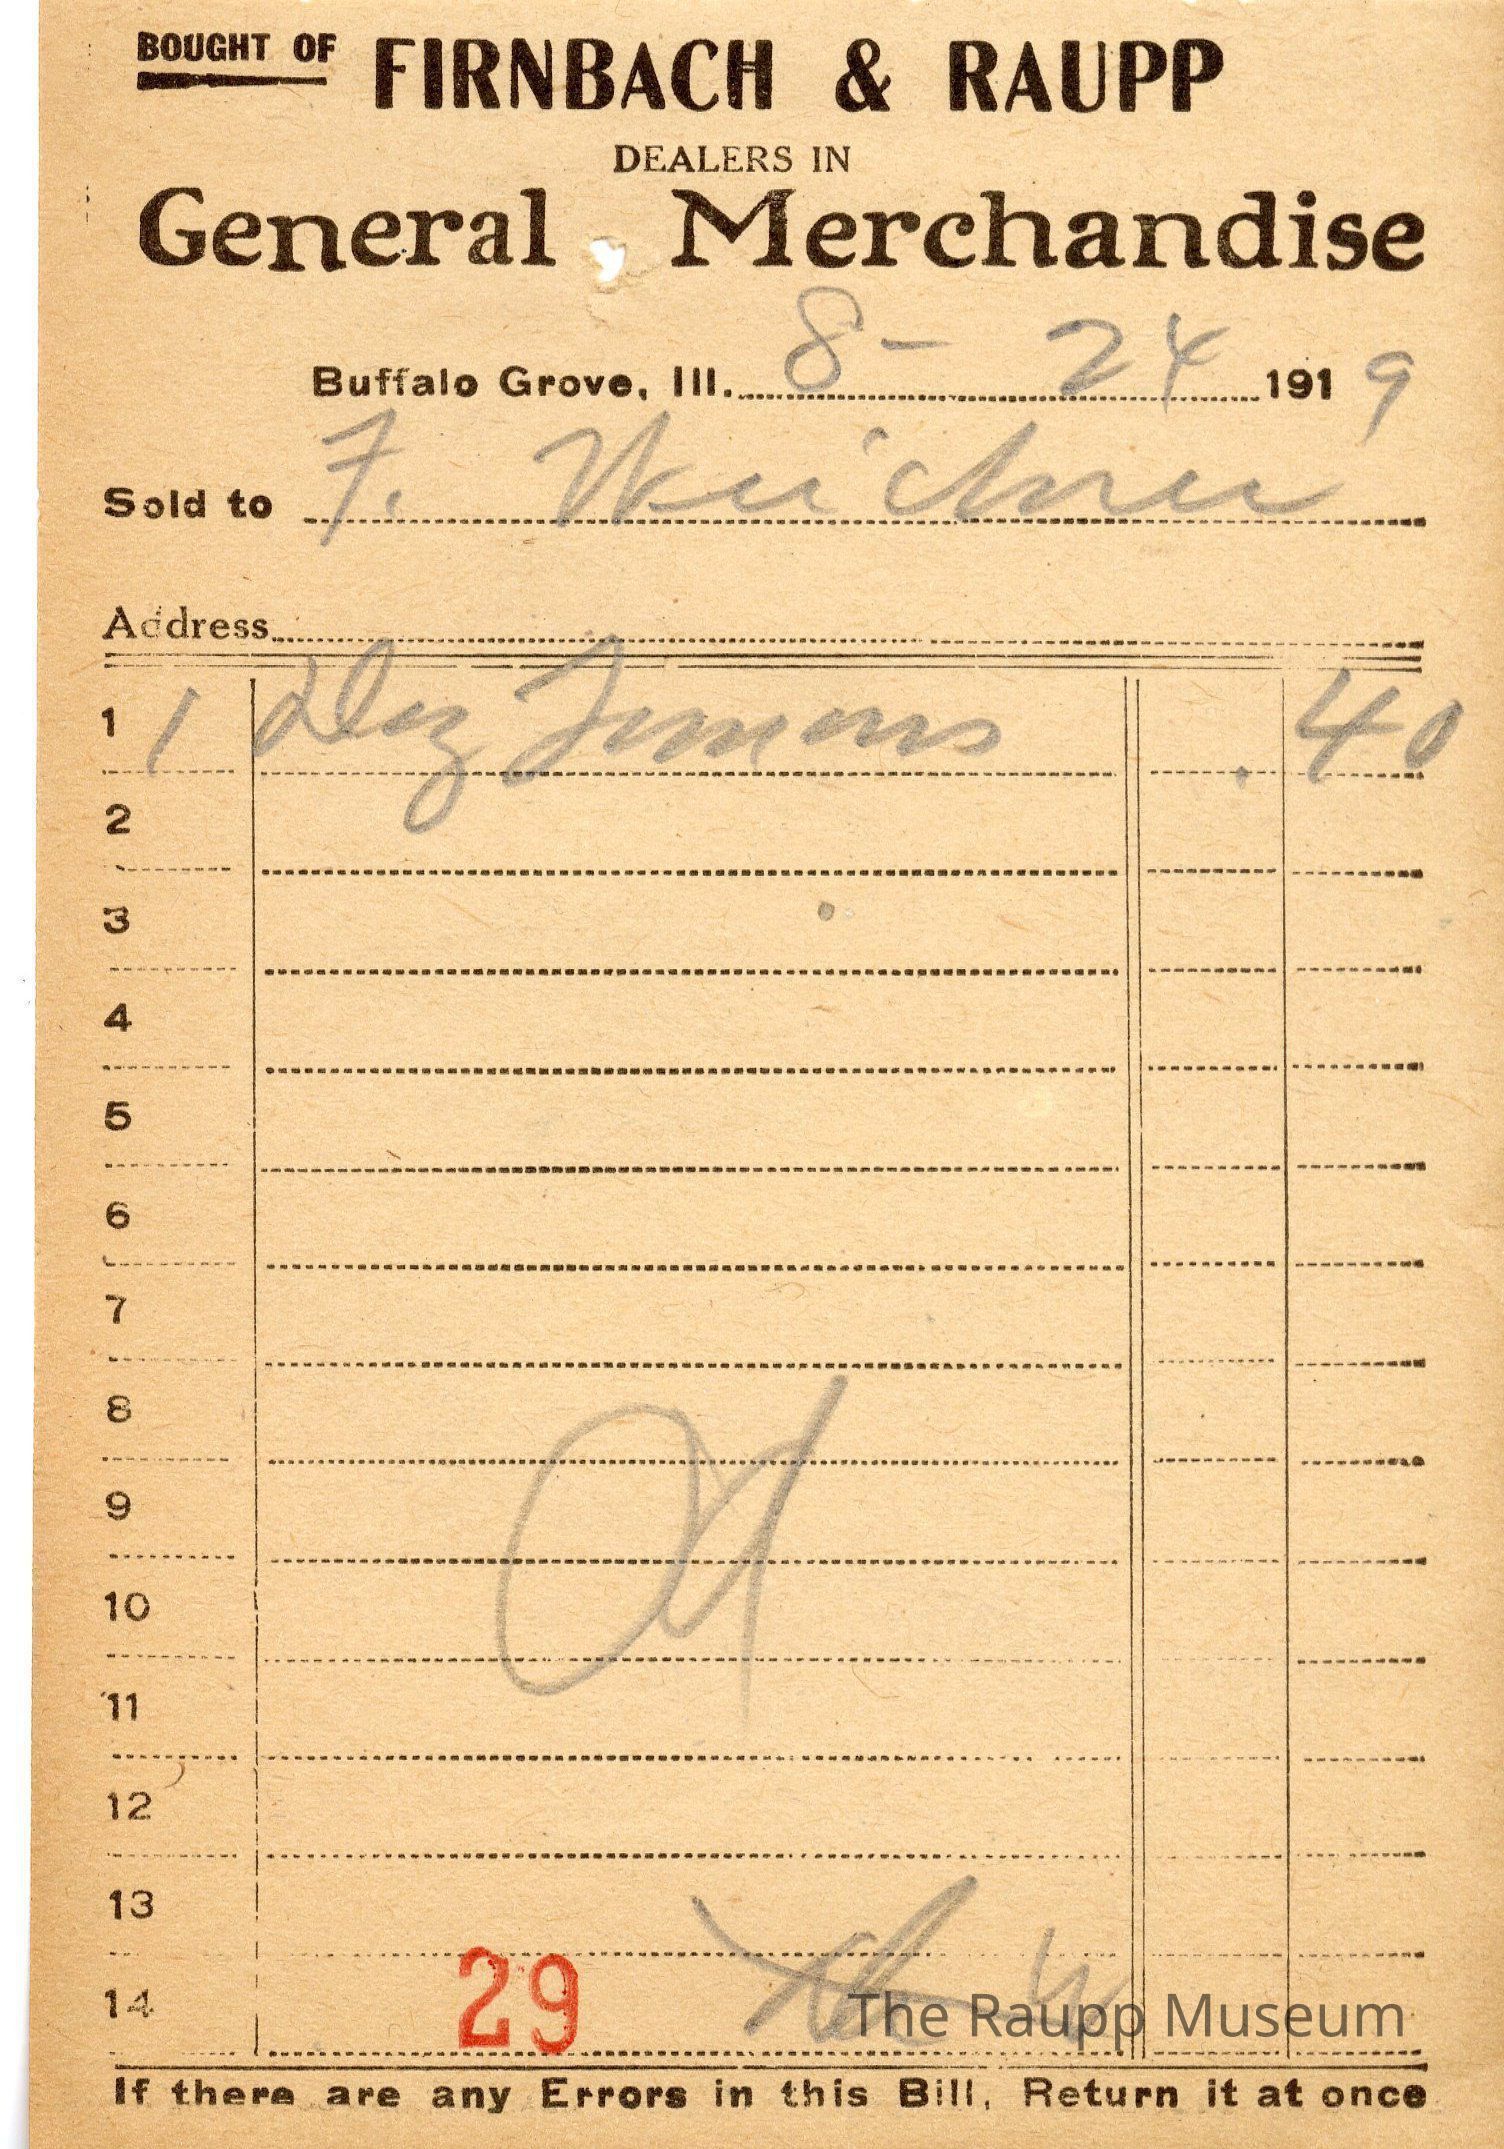 BOUGHT OF FIRNBACH & RAUPP
DEALERS IN
General Merchandise
Buffalo Grove, Ill. 8-24 1919
Sold to F.
Address
1 1 Doz Lemons .40
2
3
4
5
6
7
8
9
10
11
12
13
14 29
The Raupp Museum
If there are any Errors in this Bill, Return it at once